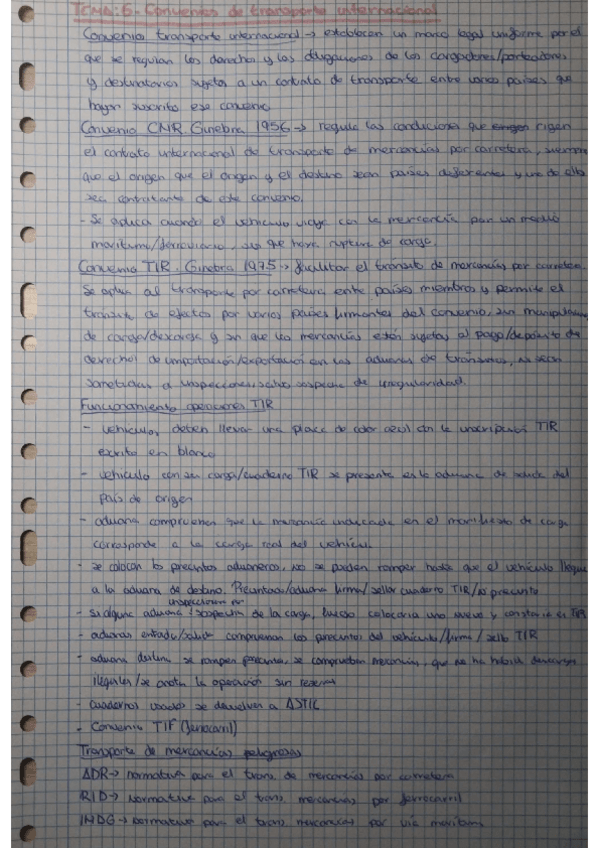 TEMA: 6.- Convenios de transporte internacional
Convenio transporte internacional → establecen un marco legal uniforme por el
que se regulan los derechos y las obligaciones de los cargadores/porteadores
y destinatarios sujetos a un contrato de transporte entre varios países que
hayan suscrito ese convenio
Convenio CMR. Ginebra 1956 → regula las condiciones que rigen
el contrato internacional de transporte de mercancías por carretera, siempre
que el origen que el origen y el destino sean países diferentes y uno de ellos
sea contratante de este convenio.
- Se aplica cuando el vehículo viaje con la mercancía por un medio
marítimo/ferroviario, sin que haya ruptura de carga.
Convenio TIR. Ginebra 1975 → facilitar el tránsito de mercancías por carretera
Se aplica al transporte por carretera entre países miembros y permite el
tránsito de efectos por varios países firmantes del convenio, sin manipulación
de carga/descarga y sin que las mercancías estén sujetas al pago/depósito de
derechos de importación/exportación en las aduanas de tránsito, no sean
sometidas a inspecciones salvo sospecha de irregularidad.
Funcionamiento operaciones TIR
- vehículo, deben llevar una placa de color azul con la inscripción TIR
escrito en blanco
- vehículo con su carga/cuaderno TIR se presenta en la aduana de salida del
país de origen
- aduana comprueban que la mercancía indicada en el manifiesto de carga
corresponde a la carga real del vehículo.
- se colocan los precintos aduaneros, no se pueden romper hasta que el vehículo llegue
a la aduana de destino. Precintado/aduana firma/sellar cuaderno TIR/nº precinto
inspeccionan
- Si alguna aduana sospecha de la carga, luego colocaría uno nuevo y constaría el TIR
- aduanas entrada/salida comprueban los precintos del vehículo/firma/sello TIR
- aduana destino se rompen precintos, se comprueban mercancías, que no ha habido descargas
ilegales/se anota la operación sin reservas
- Cuadernos usados se devuelven a ASTIC
- Convenio TIF (ferrocarril)
Transporte de mercancías peligrosas
ADR → normativa para el trans. de mercancías por carretera
RID → normativa para el trans. mercancías por ferrocarril
IMDG → normativa para el trans. mercancías por vía marítima